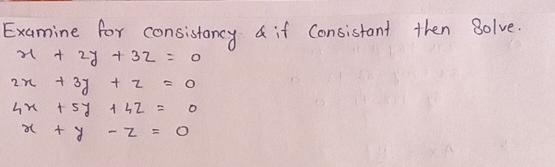 Examine for consistancy & if Consistant then Solve.
x + 2y + 3z = 0
2x + 3y + z = 0
4x + 5y + 4z = 0
x + y - z = 0